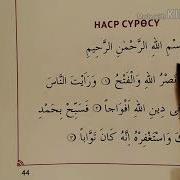 НАСР СҮРӨСҮ
سْمِ اللهِ الرَّحْمٰنِ الرَّحِيمِ
نَصْرُ اللهِ وَالْفَتْحُ ۞ وَرَأَيْتَ النَّاسَ
دِينِ اللهِ أَفْوَاجًا ۞ فَسَبِّحْ بِحَمْدِ
وَاسْتَغْفِرْهُ إِنَّهُ كَانَ تَوَّابًا ۞
44